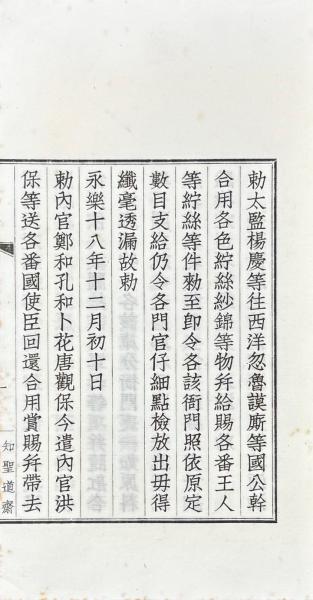 勅太監楊慶等往西洋忽魯謨厮等國公幹
合用各色紵絲紗錦等物幷給賜各番王人
等紵絲等件勅至卽令各該衙門照依原定
數目支給仍令各門官仔細點檢放出毋得
纖毫透漏故勅
永樂十八年十二月初十日
勅內官鄭和孔和卜花唐觀保今遣內官洪
保等送各番國使臣回還合用賞賜幷帶去
一
知聖道齋